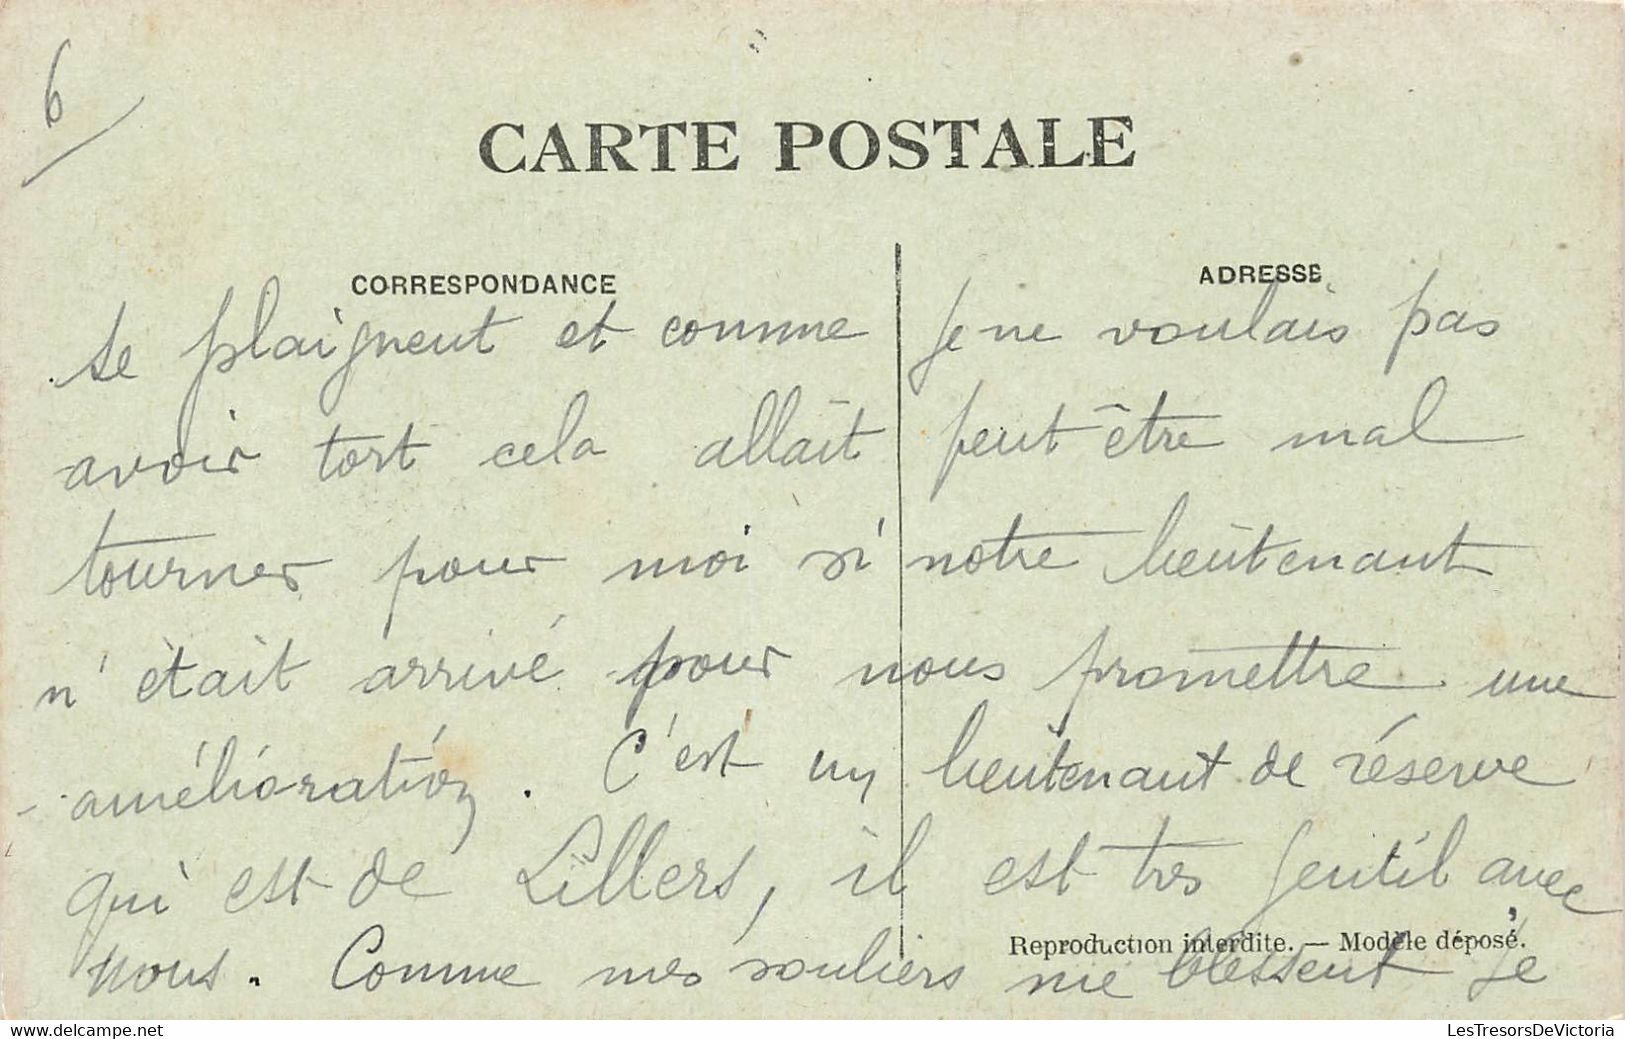 6
CARTE POSTALE
CORRESPONDANCE
ADRESSE
se plaignent et comme je ne voulais pas
avoir tort cela allait peut être mal
tourner pour moi si notre lieutenant
n'était arrivé pour nous promettre une
amélioration. C'est un lieutenant de réserve
qui est de Lillers, il est très gentil avec
nous. Comme mes souliers me blessent je
Reproduction interdite. — Modèle déposé.
© delcampe.net
LesTresorsDeVictoria